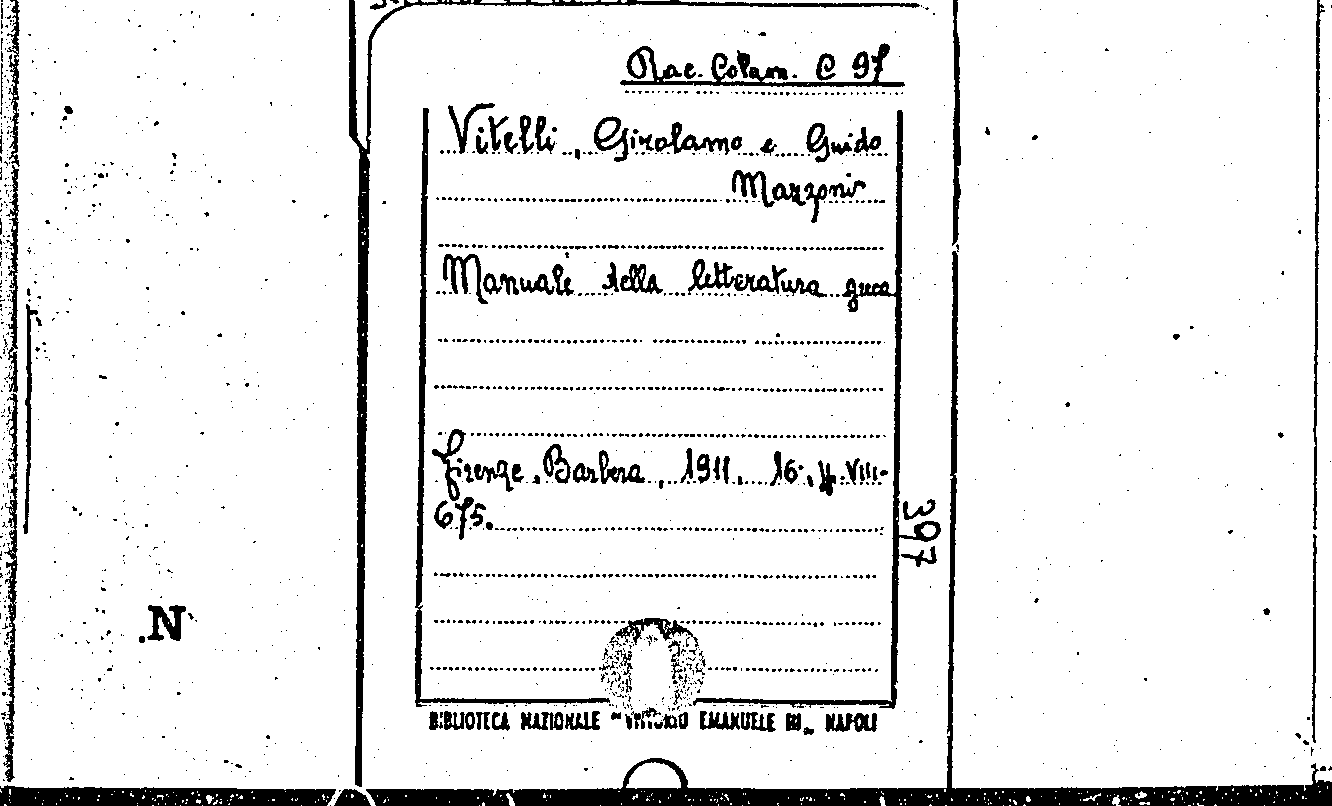 Rac. Colam. C 97
Vitelli, Girolamo e Guido
Mazzoni
Manuale della letteratura greca
Firenze, Barbera, 1911, 16°, pp. VIII-
675.
397
.N
BIBLIOTECA NAZIONALE "VITTORIO EMANUELE III" NAPOLI